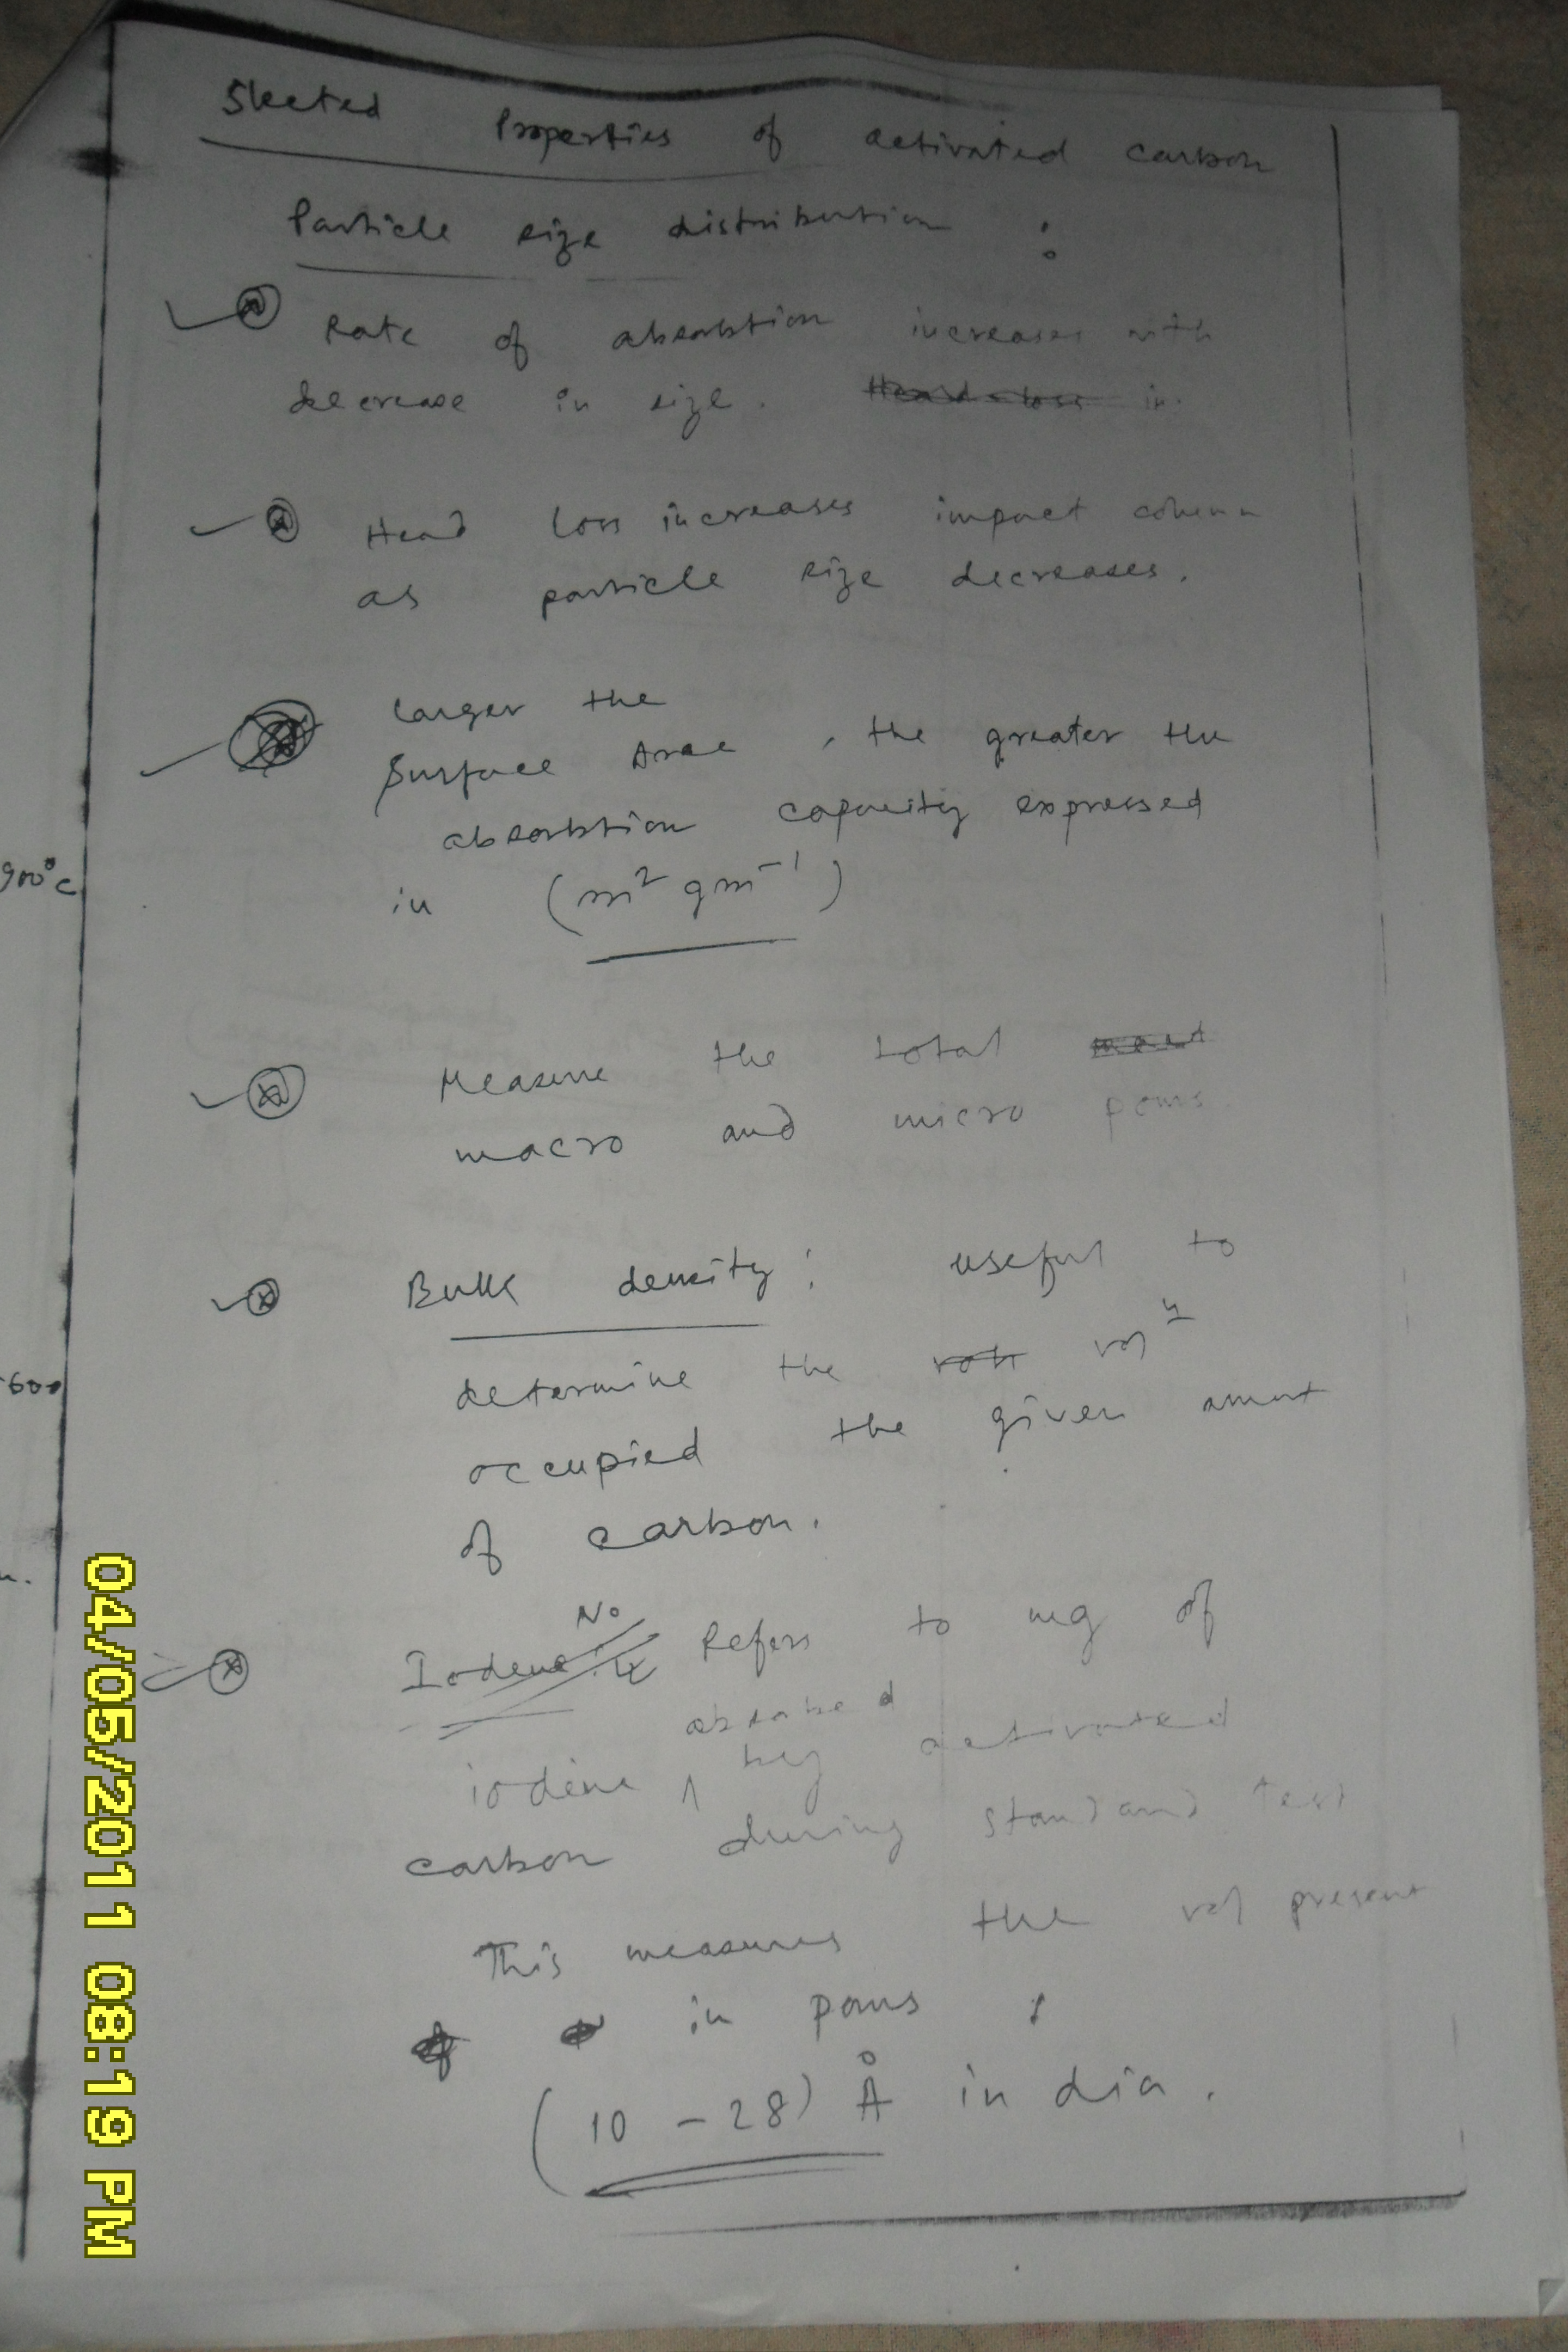 Slected Properties of activated carbon
Particle size distribution :
Rate of absorbtion increases with
decrease in size. Head loss in
Head loss increases impact column
as particle size decreases.
Larger the
Surface Arae , the greater the
absorbtion capacity expressed
in (m² gm⁻¹)
900°c
Measure the total
macro and micro pours
Bulk density : useful to
determine the vol
occupied the given amout
600
of carbon.
No
Iodene Refers to mg of
absorbed
iodine ^ by activated
carbon during standard test
This measures the vol present
in pours
(10 - 28) Å in dia.
04/05/2011 08:19 PM